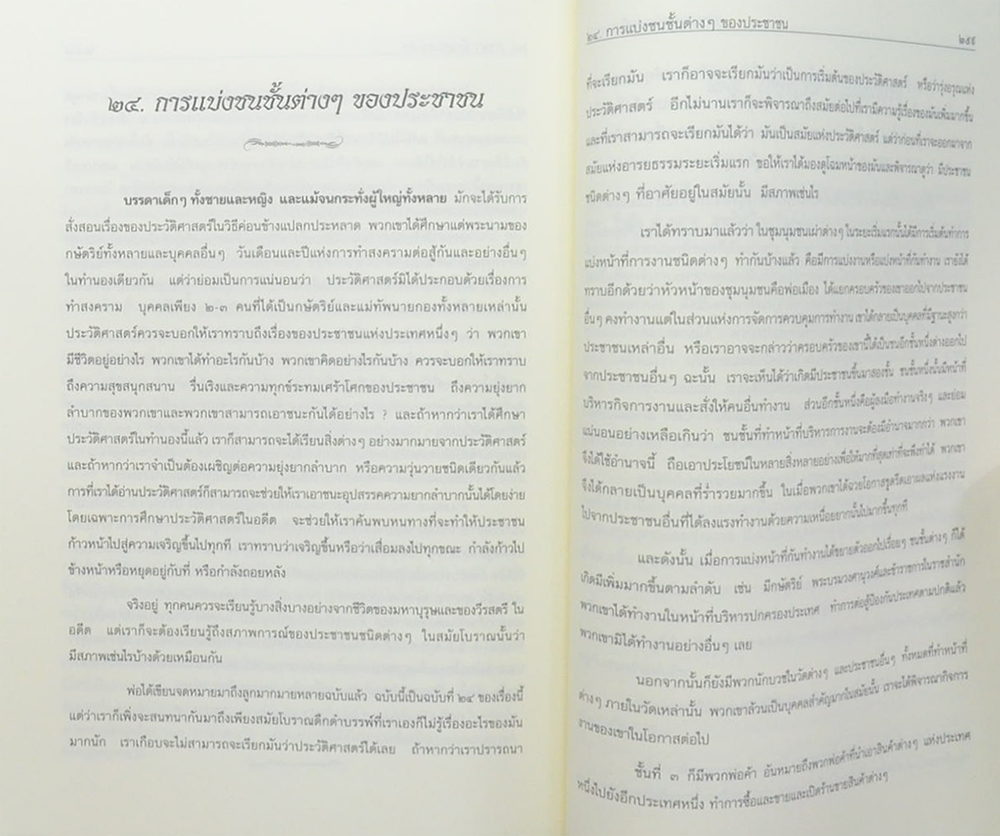 ๒๔. การแบ่งชนชั้นต่างๆ ของประชาชน
บรรดาเด็กๆ ทั้งชายและหญิง และแม้จนกระทั่งผู้ใหญ่ทั้งหลาย มักจะได้รับการ
สั่งสอนเรื่องของประวัติศาสตร์ในวิธีค่อนข้างแปลกประหลาด พวกเขาได้ศึกษาแต่พระนามของ
กษัตริย์ทั้งหลายและบุคคลอื่นๆ วันเดือนและปีแห่งการทำสงครามต่อสู้กันและอย่างอื่นๆ
ในทำนองเดียวกัน แต่ว่าย่อมเป็นการแน่นอนว่า ประวัติศาสตร์มิได้ประกอบด้วยเรื่องการ
ทำสงคราม บุคคลเพียง ๒-๓ คนที่ได้เป็นกษัตริย์และแม่ทัพนายกองทั้งหลายเหล่านั้น
ประวัติศาสตร์ควรจะบอกให้เราทราบถึงเรื่องของประชาชนแห่งประเทศหนึ่งๆ ว่า พวกเขา
มีชีวิตอยู่อย่างไร พวกเขาได้ทำอะไรกันบ้าง พวกเขาคิดอย่างไรกันบ้าง ควรจะบอกให้เราทราบ
ถึงความสุขสนุกสนาน รื่นเริงและความทุกข์ระทมเศร้าโศกของประชาชน ถึงความยุ่งยาก
ลำบากของพวกเขาและพวกเขาสามารถเอาชนะกันได้อย่างไร ? และถ้าหากว่าเราได้ศึกษา
ประวัติศาสตร์ในทำนองนี้แล้ว เราก็สามารถจะได้เรียนสิ่งต่างๆ อย่างมากมายจากประวัติศาสตร์
และถ้าหากว่าเราจำเป็นต้องเผชิญต่อความยุ่งยากลำบาก หรือความวุ่นวายชนิดเดียวกันแล้ว
การที่เราได้อ่านประวัติศาสตร์ก็สามารถจะช่วยให้เราเอาชนะอุปสรรคความยากลำบากนั้นได้โดยง่าย
โดยเฉพาะการศึกษาประวัติศาสตร์ในอดีต จะช่วยให้เราค้นพบหนทางที่จะทำให้ประชาชน
ก้าวหน้าไปสู่ความเจริญขึ้นไปทุกที เราทราบว่าเจริญขึ้นหรือว่าเสื่อมลงไปทุกขณะ กำลังก้าวไป
ข้างหน้าหรือหยุดอยู่กับที่ หรือกำลังถอยหลัง
จริงอยู่ ทุกคนควรจะเรียนรู้บางสิ่งบางอย่างจากชีวิตของมหาบุรุษและของวีรสตรี ใน
อดีต แต่เราก็จะต้องเรียนรู้ถึงสภาพการณ์ของประชาชนชนิดต่างๆ ในสมัยโบราณนั้นว่า
มีสภาพเช่นไรบ้างด้วยเหมือนกัน
พ่อได้เขียนจดหมายมาถึงลูกมากมายหลายฉบับแล้ว ฉบับนี้เป็นฉบับที่ ๒๔ ของเรื่องนี้
แต่ว่าเราก็เพิ่งจะสนทนากันมาถึงเพียงสมัยโบราณดึกดำบรรพ์ที่เราเองก็ไม่รู้เรื่องอะไรของมัน
มากนัก เราเกือบจะไม่สามารถจะเรียกมันว่าประวัติศาสตร์ได้เลย ถ้าหากว่าเราปรารถนา
๒๔. การแบ่งชนชั้นต่างๆ ของประชาชน
ที่จะเรียกมัน เราก็อาจจะเรียกมันว่าเป็นการเริ่มต้นของประวัติศาสตร์ หรือว่ารุ่งอรุณแห่ง
ประวัติศาสตร์ อีกไม่นานเราก็จะพิจารณาถึงสมัยต่อไปที่เรามีความรู้เรื่องของมันเพิ่มมากขึ้น
และที่เราสามารถจะเรียกมันได้ว่า มันเป็นสมัยแห่งประวัติศาสตร์ แต่ว่าก่อนที่เราจะออกมาจาก
สมัยแห่งอารยธรรมระยะเริ่มแรก ขอให้เราได้มองดูโฉมหน้าของมันและพิจารณาดูว่า มีประชาชน
ชนิดต่างๆ ที่อาศัยอยู่ในสมัยนั้น มีสภาพเช่นไร
เราได้ทราบมาแล้วว่า ในชุมนุมชนเผ่าต่างๆ ในระยะเริ่มแรกนั้นได้มีการเริ่มต้นทำการ
แบ่งหน้าที่การงานชนิดต่างๆ ทำกันบ้างแล้ว คือมีการแบ่งงานหรือแบ่งหน้าที่กันทำงาน เรายังได้
ทราบอีกด้วยว่าหัวหน้าของชุมนุมชนคือพ่อเมือง ได้แยกครอบครัวของเขาออกไปจากประชาชน
อื่นๆ คงทำงานแต่ในส่วนแห่งการจัดการควบคุมการทำงาน เขาได้กลายเป็นบุคคลที่มีฐานะสูงกว่า
ประชาชนเหล่าอื่น หรือเราอาจจะกล่าวว่าครอบครัวของเขานี้ได้เป็นชนอีกชั้นหนึ่งต่างออกไป
จากประชาชนอื่นๆ ฉะนั้น เราจะเห็นได้ว่าเกิดมีประชาชนขึ้นมาสองชั้น ชนชั้นหนึ่งนั้นมีหน้าที่
บริหารกิจการงานและสั่งให้คนอื่นทำงาน ส่วนอีกชั้นหนึ่งคือผู้ลงมือทำงานจริงๆ และย่อม
แน่นอนอย่างเหลือเกินว่า ชนชั้นที่ทำหน้าที่บริหารการงานจะต้องมีอำนาจมากกว่า พวกเขา
จึงได้ใช้อำนาจนี้ ถือเอาประโยชน์ในหลายสิ่งหลายอย่างเพื่อให้มากที่สุดเท่าที่จะพึงทำได้ พวกเขา
จึงได้กลายเป็นบุคคลที่ร่ำรวยมากขึ้น ในเมื่อพวกเขาได้ฉวยโอกาสขูดรีดเอาผลแห่งแรงงาน
ไปจากประชาชนอื่นที่ได้ลงแรงทำงานด้วยความเหนื่อยยากนั้นไปมากขึ้นทุกที
และดังนั้น เมื่อการแบ่งหน้าที่กันทำงานได้ขยายตัวออกไปเรื่อยๆ ชนชั้นต่างๆ ก็ได้
เกิดมีเพิ่มมากขึ้นตามลำดับ เช่น มีกษัตริย์ พระบรมวงศานุวงศ์และข้าราชการในราชสำนัก
พวกเขาได้ทำงานในหน้าที่บริหารปกครองประเทศ ทำการต่อสู้ป้องกันประเทศตามปกติแล้ว
พวกเขามิได้ทำงานอย่างอื่นๆ เลย
นอกจากนั้นก็ยังมีพวกนักบวชในวัดต่างๆ และประชาชนอื่นๆ ทั้งหมดที่ทำหน้าที่
ต่างๆ ภายในวัดเหล่านั้น พวกเขาล้วนเป็นบุคคลสำคัญมากในสมัยนั้น เราจะได้พิจารณากิจการ
งานของเขาในโอกาสต่อไป
ชั้นที่ ๓ ก็มีพวกพ่อค้า อันหมายถึงพวกพ่อค้าที่นำเอาสินค้าต่างๆ แห่งประเทศ
หนึ่งไปยังอีกประเทศหนึ่ง ทำการซื้อและขายและเปิดร้านขายสินค้าต่างๆ